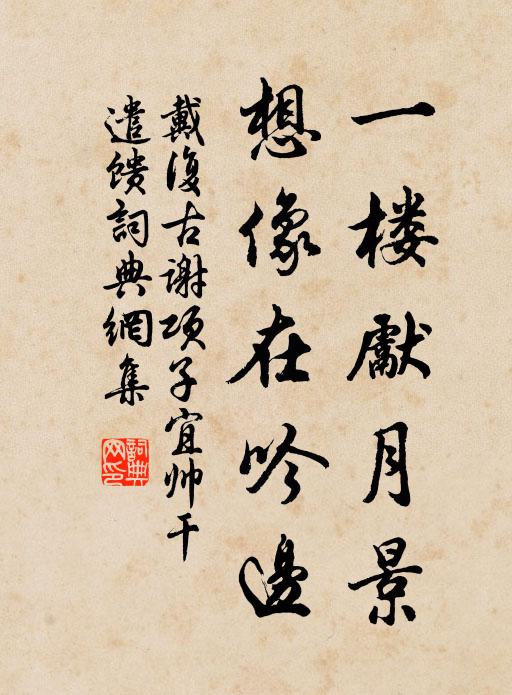 一楼獻月景
想像在吟邊
戴復古谢项子宜帅干
遣馈詞典網集
詞典网印